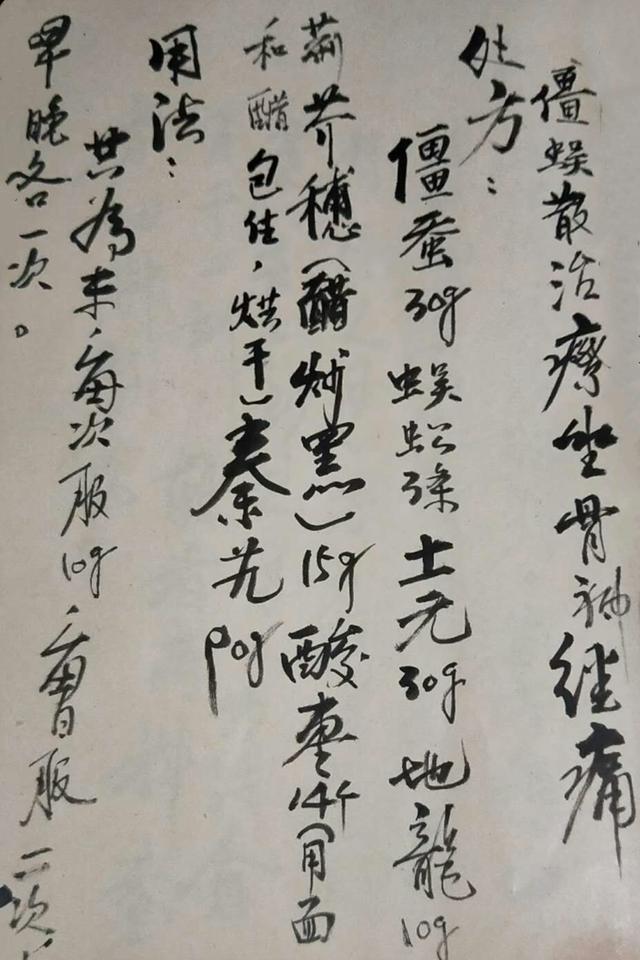 僵蜈散治療坐骨神经痛
处方：
僵蚕30g 蜈蚣3条 土元30g 地龍10g
荊芥穗（醋炒黑）15g 酸枣14个（用面
和醋包住、烘干）秦艽
用法：
共為末、每次服10g、每日服二次、
早晚各一次。